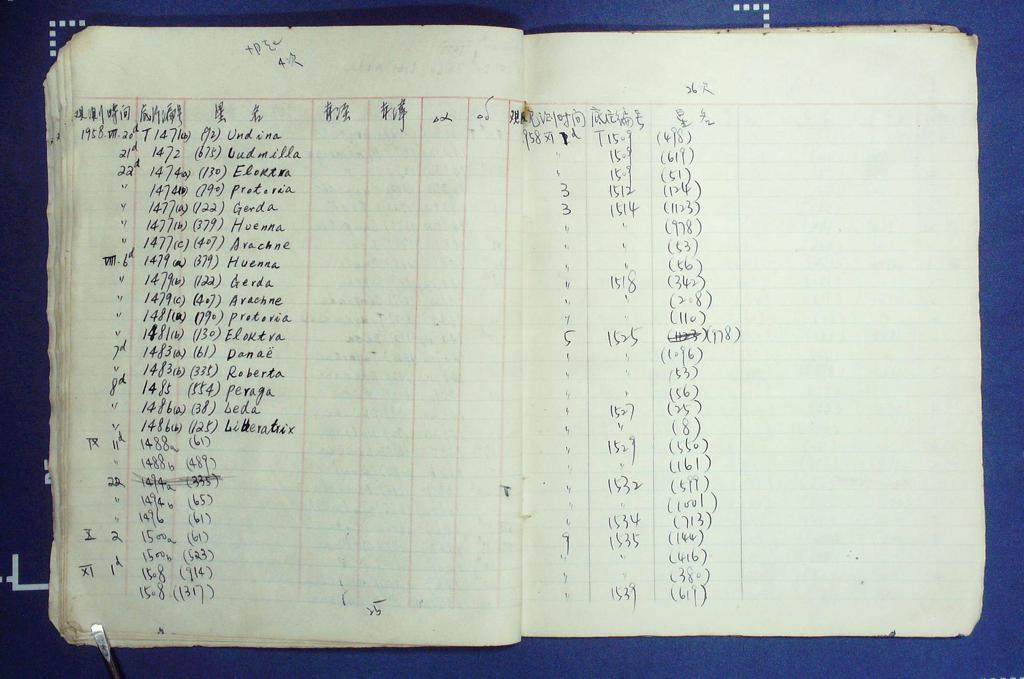 4次
观测时间 底片编号 星名 赤经 赤纬 Δα Δδ
1958.VII.20d T1471(b) (92) Undina
21d 1472 (675) Ludmilla
22d 1474(a) (130) Elektra
" 1474(b) (790) Pretoria
" 1477(a) (122) Gerda
" 1477(b) (379) Huenna
" 1477(c) (407) Arachne
VIII.6d 1479(a) (379) Huenna
" 1479(b) (122) Gerda
" 1479(c) (407) Arachne
" 1481(a) (790) Pretoria
" 1481(b) (130) Elektra
7d 1483(a) (61) Danaë
" 1483(b) (335) Roberta
8d 1485 (554) Peraga
" 1486(a) (38) Leda
" 1486(b) (125) Liberatrix
IX 11d 1488a (61)
" 1488b (489)
22 1494a (335)
" 1494b (65)
" 1496 (61)
X 2 1500a (61)
1500b (523)
XI 1d 1508 (914)
1508 (1317)
25
26次
观测时间 底片编号 星名
958 XI 1d T1509 (498)
" 1509 (619)
" 1509 (51)
3 1512 (124)
3 1514 (1123)
" " (978)
" " (53)
" " (56)
" 1518 (342)
" " (208)
" " (110)
5 1525 (1123) (978)
" " (1096)
" " (53)
" " (56)
" 1527 (25)
" " (8)
" 1529 (550)
" " (161)
" 1532 (599)
" " (1001)
" 1534 (713)
9 1535 (144)
" " (416)
" " (380)
" 1539 (619)